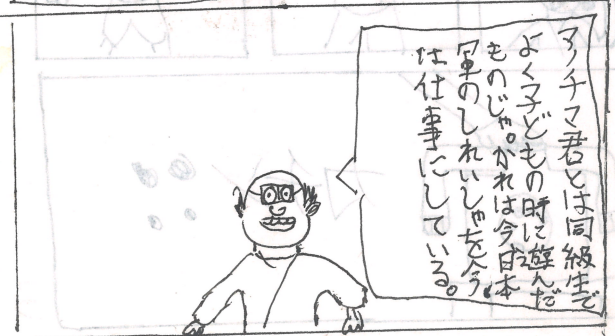 アノチマ君とは同級生で
よく子どもの時に遊んだ
ものじゃ。かれは今日本
軍のしれいしゃを今
は仕事にしている。